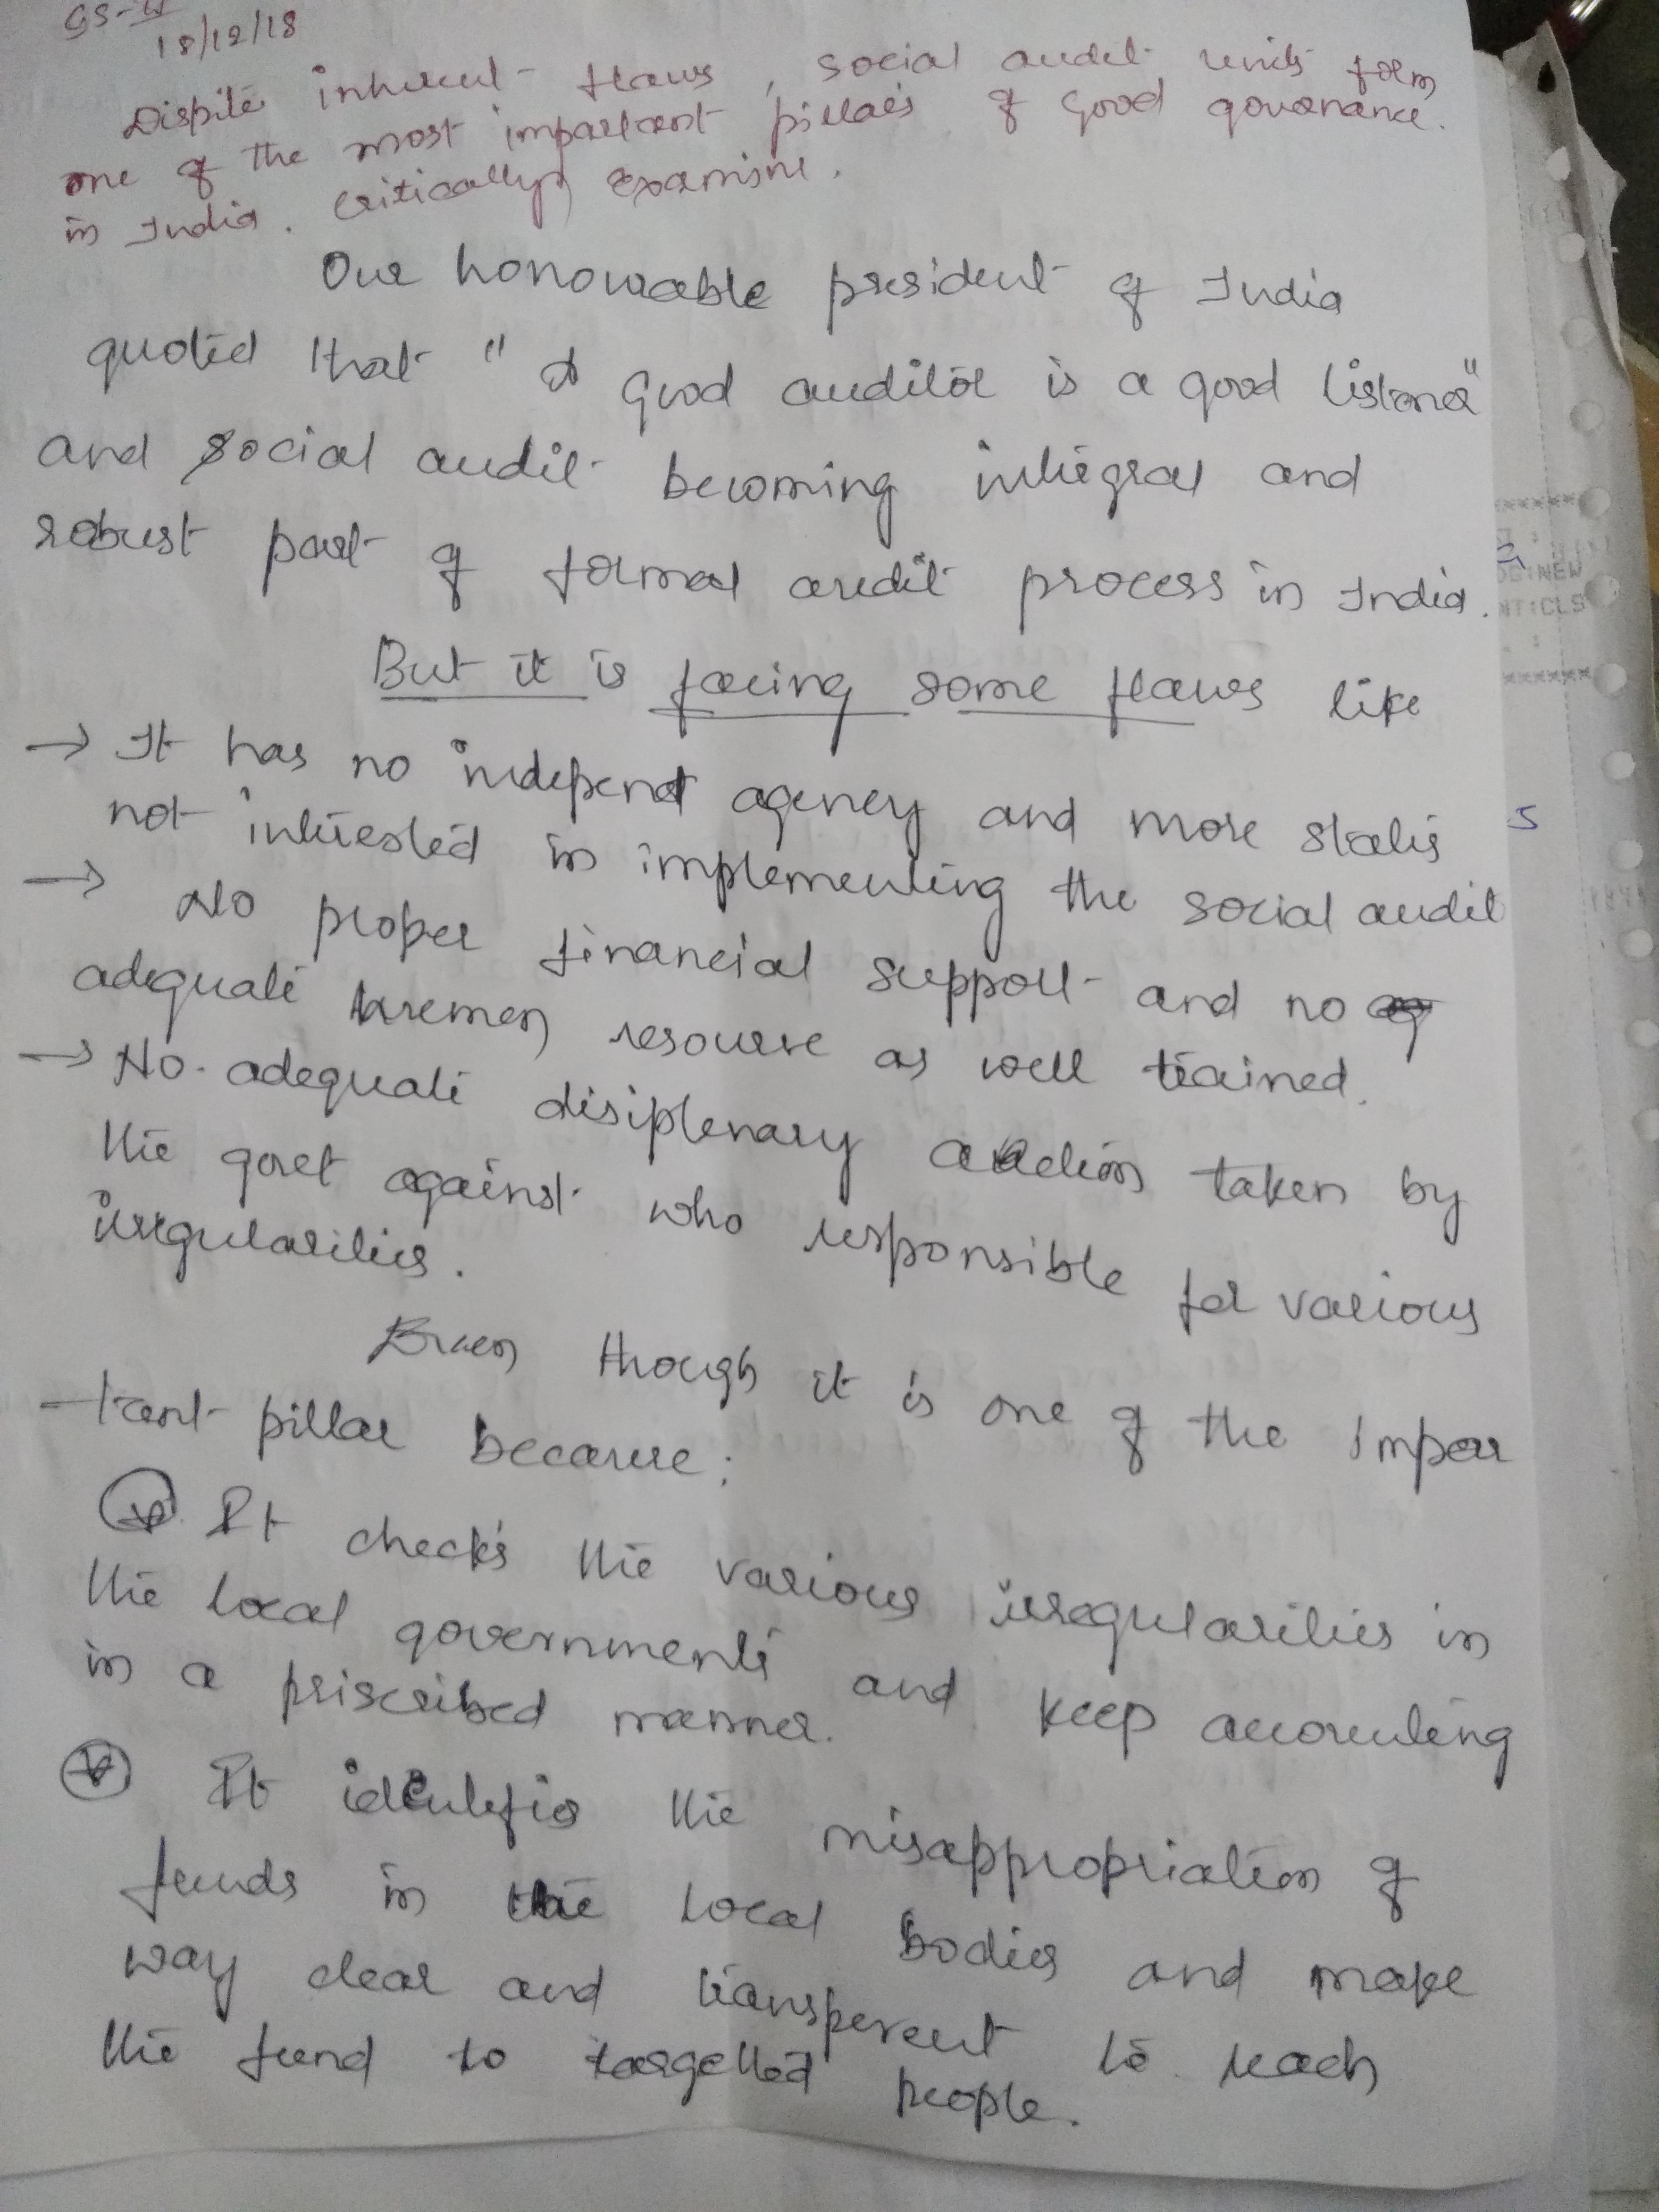 GS-II
18/12/18
Dispite inherent flaws, social audit units form
one of the most important pillars of Good governance.
in India. critically examine.
Our honourable president of India
quoted that "A Good auditor is a good listener"
and social audit becoming integral and
robust part of formal audit process in India.
But it is facing some flaws like
→ It has no independt agency and more states
not intrested in implementing the social audit
→ No proper financial support and no
adequate humen resource as well trained.
→ No. adequate disiplenary action taken by
the govt against who responsible for various
irregularities.
Even though it is one of the Impor
-tant pillar because:
It checks the various irregularities in
the local governments and keep accounting
in a priscribed manner.
It identifies the misappropriation of
funds in the local bodies and make
way clear and transperent to reach
the fund to targetted people.
S
NEW
CLS